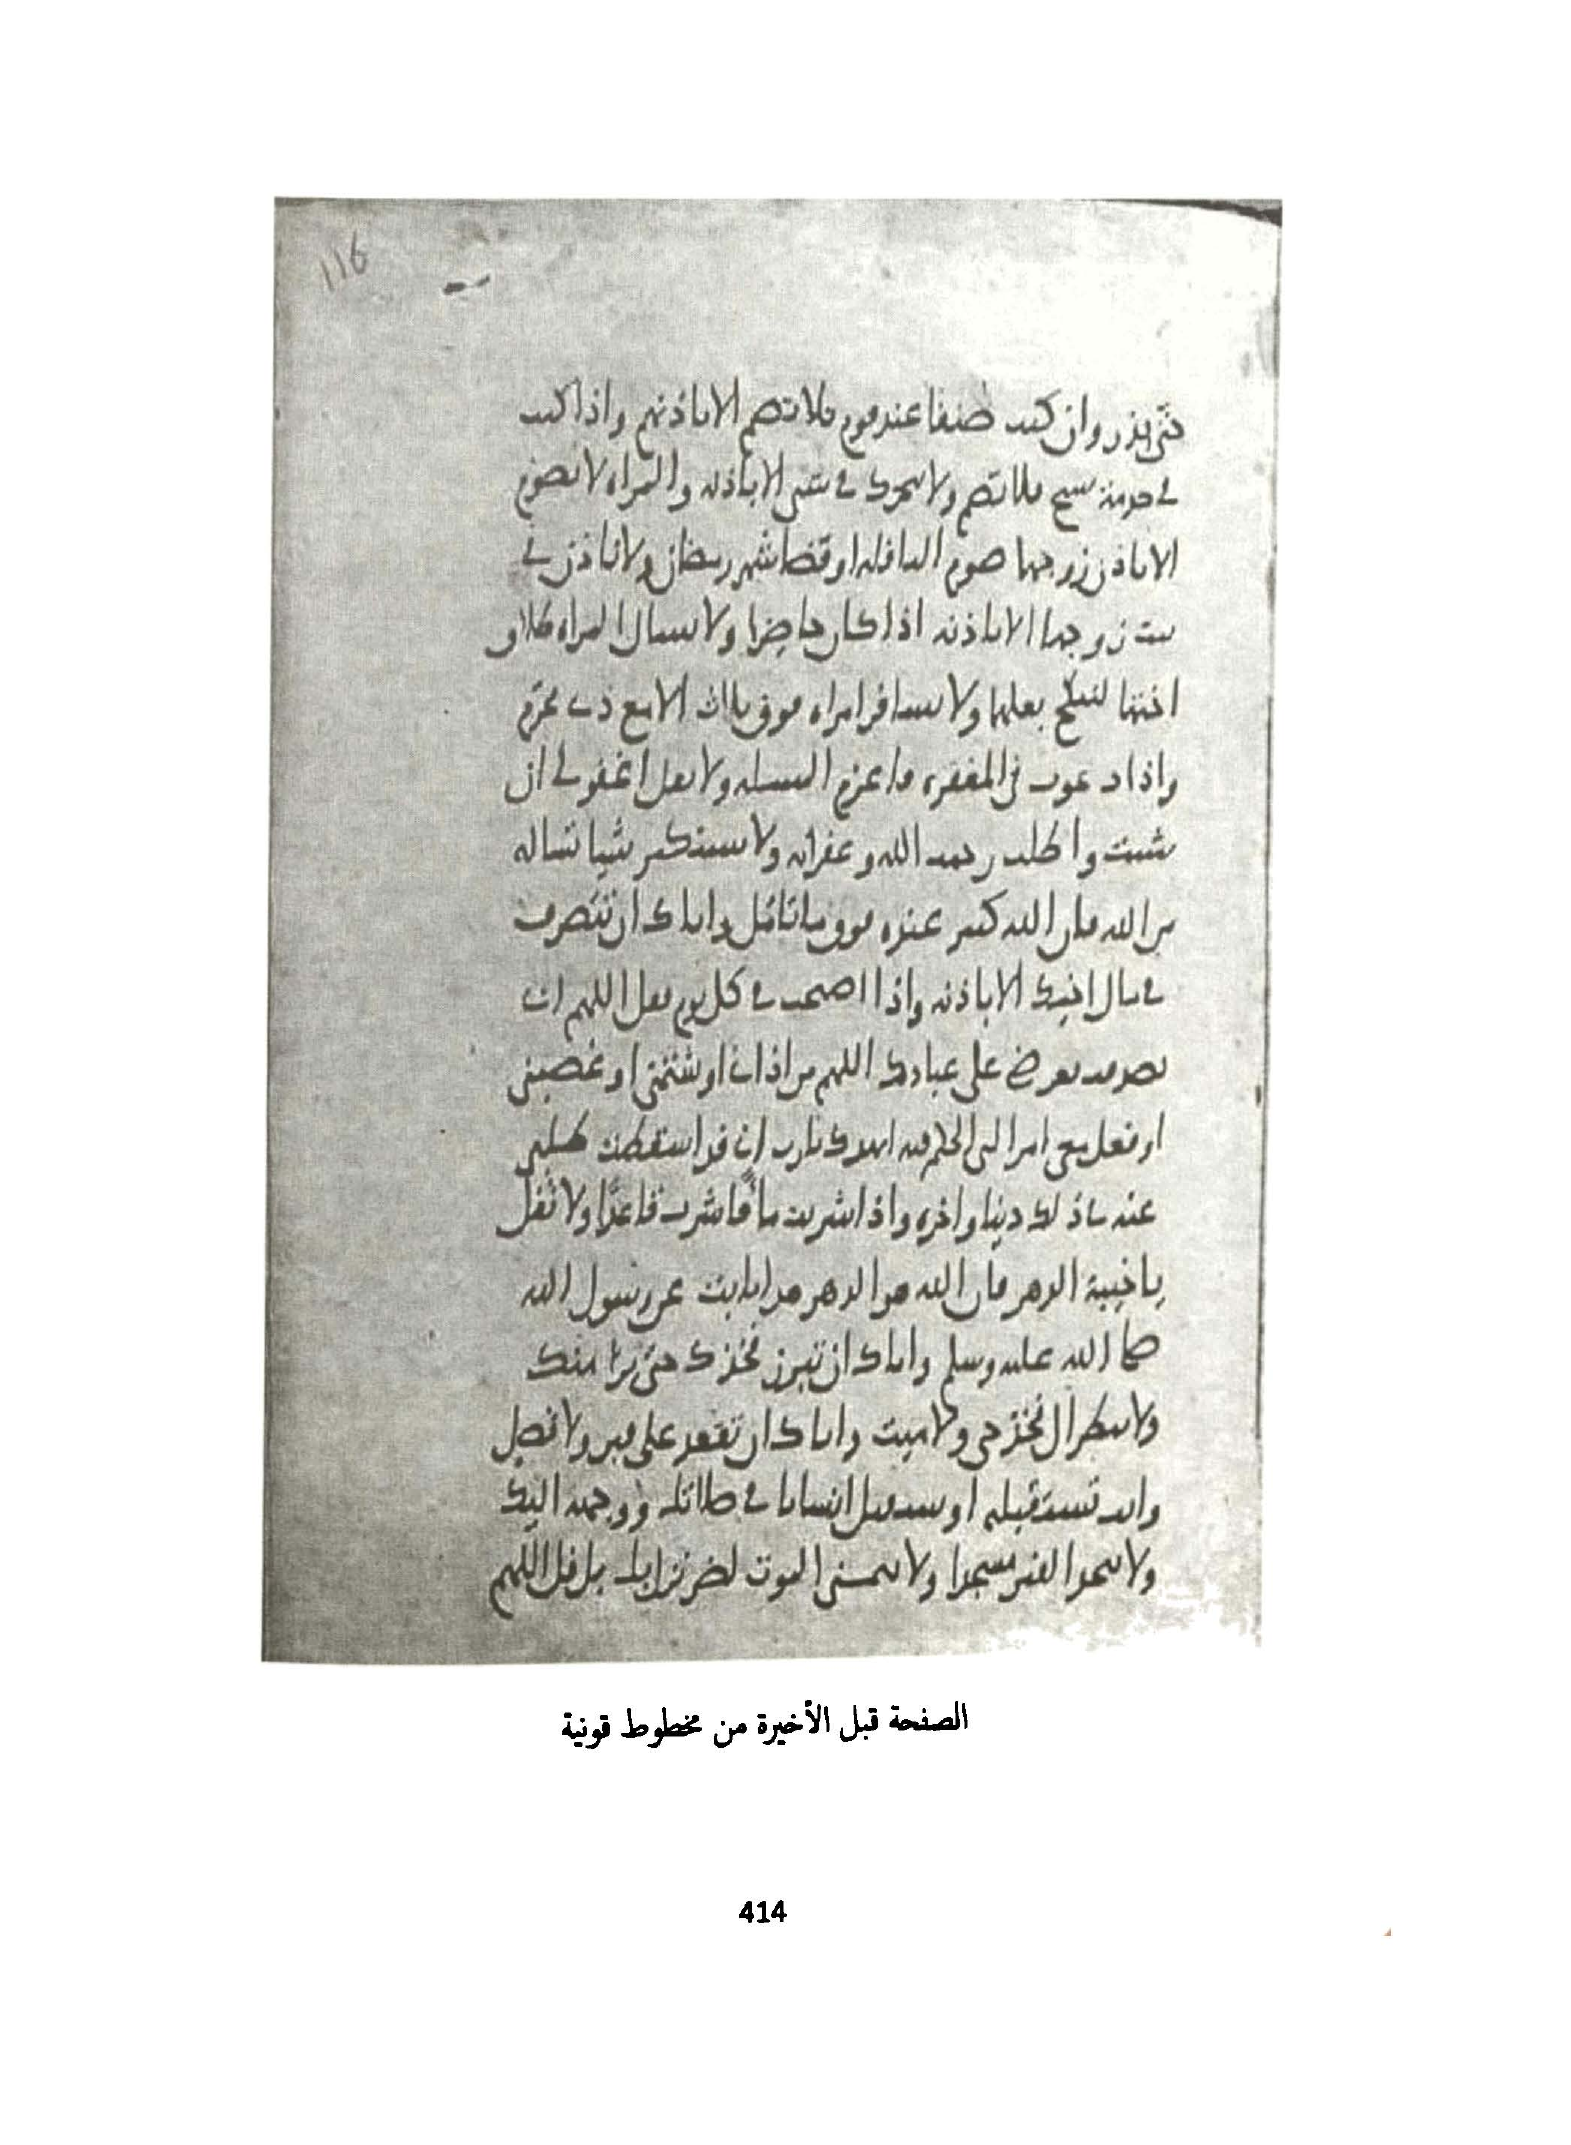 116
حتى يذر وان كنت ضيفا عند قوم فلا تصم الا باذنهم واذا كنت
في خدمة شيخ فلا تصم ولا تتحرك في شي الا باذنه والمراه لا تصوم
الا باذن زوجها صوم النافله او قضا شهر رمضان ولا تاذن في
بيت زوجها الا باذنه اذا كان حاضرا ولا تسال المراه طلاق
اختها لتنكح بعلها ولا تسافر امراه فوق ثلاث الا مع ذي محرم
واذا دعوت في المغفره فاعزم المسله ولا تقل اغفر لي ان
شئت واطلب رحمه الله وغفرانه ولا تستكثر شيا تساله
من الله فان الله كبير عنده فوق ما تامل واياك ان تتصرف
في مال اخيك الا باذنه واذا اصبحت في كل يوم فقل اللهم اني
تصدقت بعرضي على عبادك اللهم من اذاني او شتمني او غصبني
او فعل معي امرا لي الحكم فيه اشهدك يارب اني قد اسقطت طلبي
عنه في ذلك دنيا واخره واذا شربت ما فاشرب قاعدا ولا تقل
يا خيبة الدهر فان الله هو الدهر هذا ثابت عن رسول الله
صلى الله عليه وسلم واياك ان تبرز فخذك حتى يرا منك
ولا تنظر الى فخذ حي ولا ميت واياك ان تقعد على قبر ولا تصلي
وانت تستقبله او تستقبل انسانا في صلاته ووجهه اليك
ولا تتخذ القبر مسجدا ولا تتمنى الموت لضر نزل بك بل قل اللهم
الصفحة قبل الأخيرة من مخطوط قونية
414